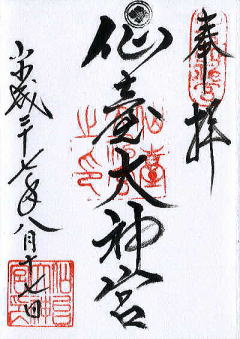 奉拝
仙臺大神宮
平成二十七年八月十七日